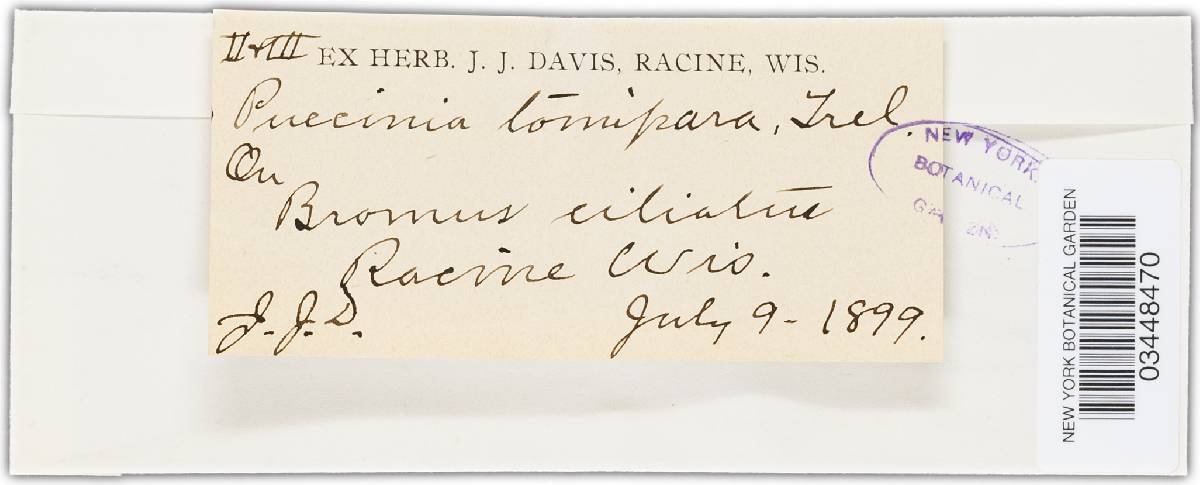 II & III EX HERB. J. J. DAVIS, RACINE, WIS.
Puccinia tomipara, Trel.
On
Bromus ciliatus
Racine Wis.
J. J. D. July 9 - 1899.
NEW YORK
BOTANICAL
NEW YORK BOTANICAL GARDEN
03448470